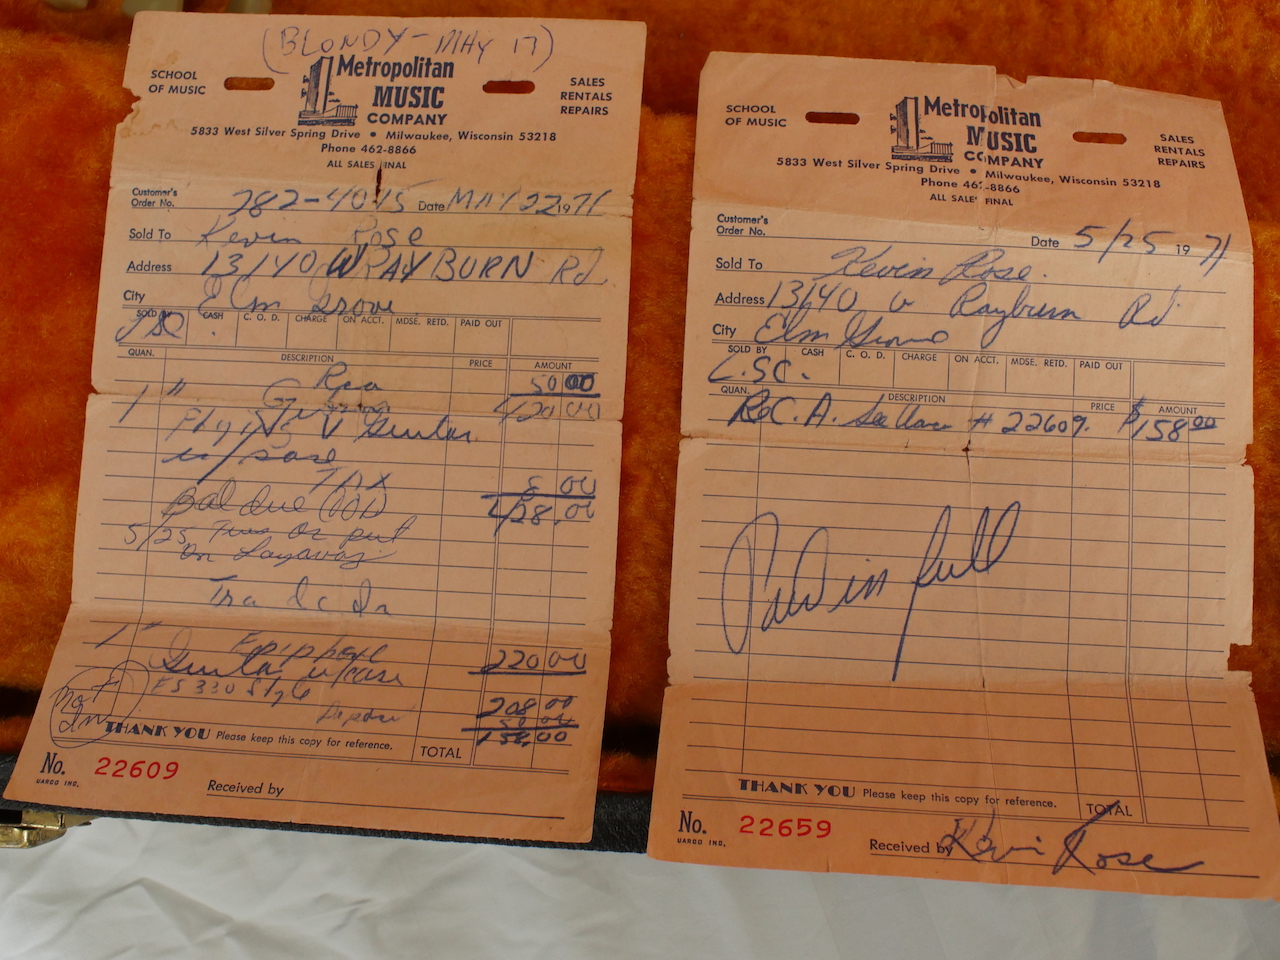 (BLONDY - MAY 17)
SCHOOL
OF MUSIC
Metropolitan
MUSIC
COMPANY
SALES
RENTALS
REPAIRS
5833 West Silver Spring Drive • Milwaukee, Wisconsin 53218
Phone 462-8866
ALL SALES FINAL
Customer's
Order No. 782-4015 Date MAY 22 1971
Sold To Kevin Rose
Address 13140 W RAYBURN Rd.
City Elm Grove
SOLD BY CASH C. O. D. CHARGE ON ACCT. MDSE. RETD. PAID OUT
LSC
QUAN. DESCRIPTION PRICE AMOUNT
50 00
1 " 420 00
Flying V Guitar
w/case
TAX 8 00
Bal due 428.00
5/25 or put
On Layaway
Trade In
1 " Epiphone 220 00
Guitar w/case
ES 330 Style
208 00
Deposit 50 00
158.00
THANK YOU Please keep this copy for reference. TOTAL
No. 22609
UARCO INC.
Received by
SCHOOL
OF MUSIC
Metropolitan
MUSIC
COMPANY
SALES
RENTALS
REPAIRS
5833 West Silver Spring Drive • Milwaukee, Wisconsin 53218
Phone 462-8866
ALL SALES FINAL
Customer's
Order No. Date 5/25 1971
Sold To Kevin Rose.
Address 13140 W Rayburn Rd
City Elm Grove
SOLD BY CASH C. O. D. CHARGE ON ACCT. MDSE. RETD. PAID OUT
L.SC.
QUAN. DESCRIPTION PRICE AMOUNT
R.O.C.A. See # 22609. $158 00
Paid in full
THANK YOU Please keep this copy for reference. TOTAL
No. 22659
UARCO INC.
Received by Kevin Rose